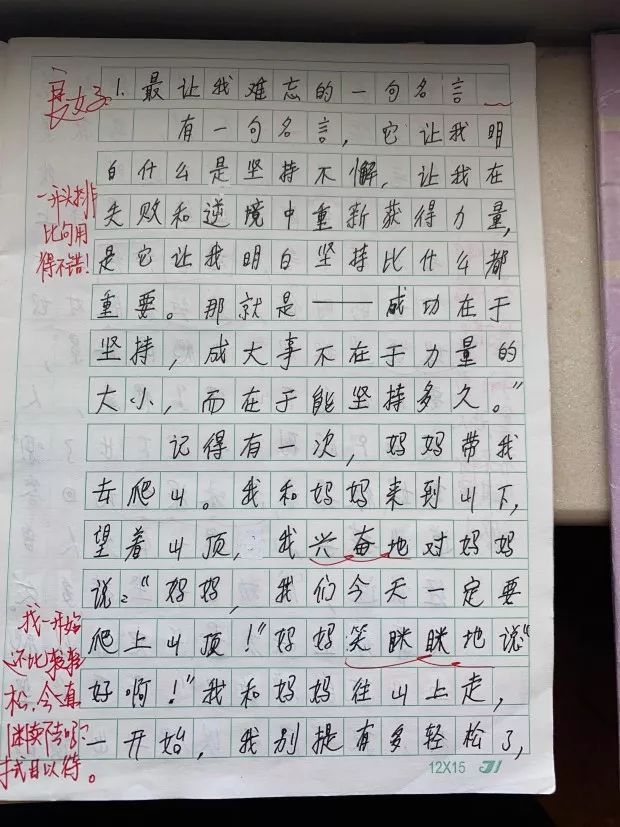 1.最让我难忘的一句名言
有一句名言，它让我明
白什么是坚持不懈，让我在
失败和逆境中重新获得力量，
是它让我明白坚持比什么都
重要。那就是——成功在于
坚持，成大事不在于力量的
大小，而在于能坚持多久。”
记得有一次，妈妈带我
去爬山。我和妈妈来到山下，
望着山顶，我兴奋地对妈妈
说：“妈妈，我们今天一定要
爬上山顶！”妈妈笑眯眯地说“
好啊！”我和妈妈往山上走，
一开始，我别提有多轻松了，
12X15
一开头排
比句用
得不错！
我一开始
还比较轻
松，今真